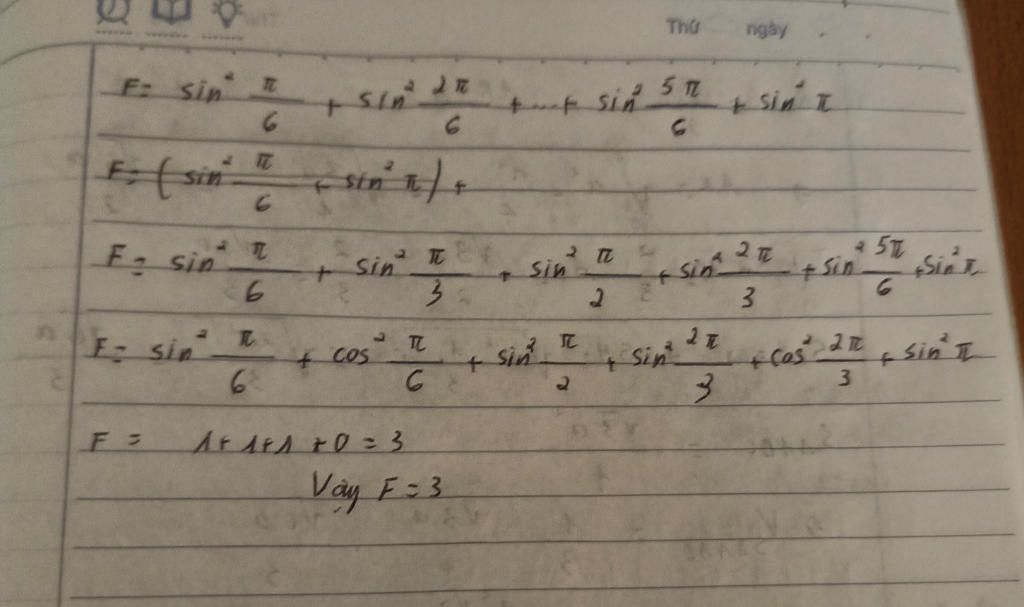 Thứ ngày . .
F = sin² π/6 + sin² 2π/6 + ... + sin² 5π/6 + sin² π
F = (sin² π/6 + sin² π) +
F = sin² π/6 + sin² π/3 + sin² π/2 + sin² 2π/3 + sin² 5π/6 + sin² π
F = sin² π/6 + cos² π/6 + sin² π/2 + sin² 2π/3 + cos² 2π/3 + sin² π
F = 1 + 1 + 1 + 0 = 3
Vậy F = 3